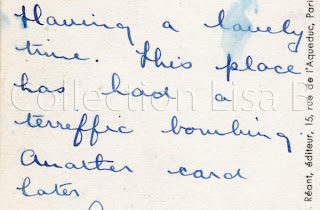 Having a lovely
time. This place
has had a
terreffic bombing.
Anatter card
later
Collection Lisa B
. Réant, éditeur, 15, rue de l'Aqueduc, Pari